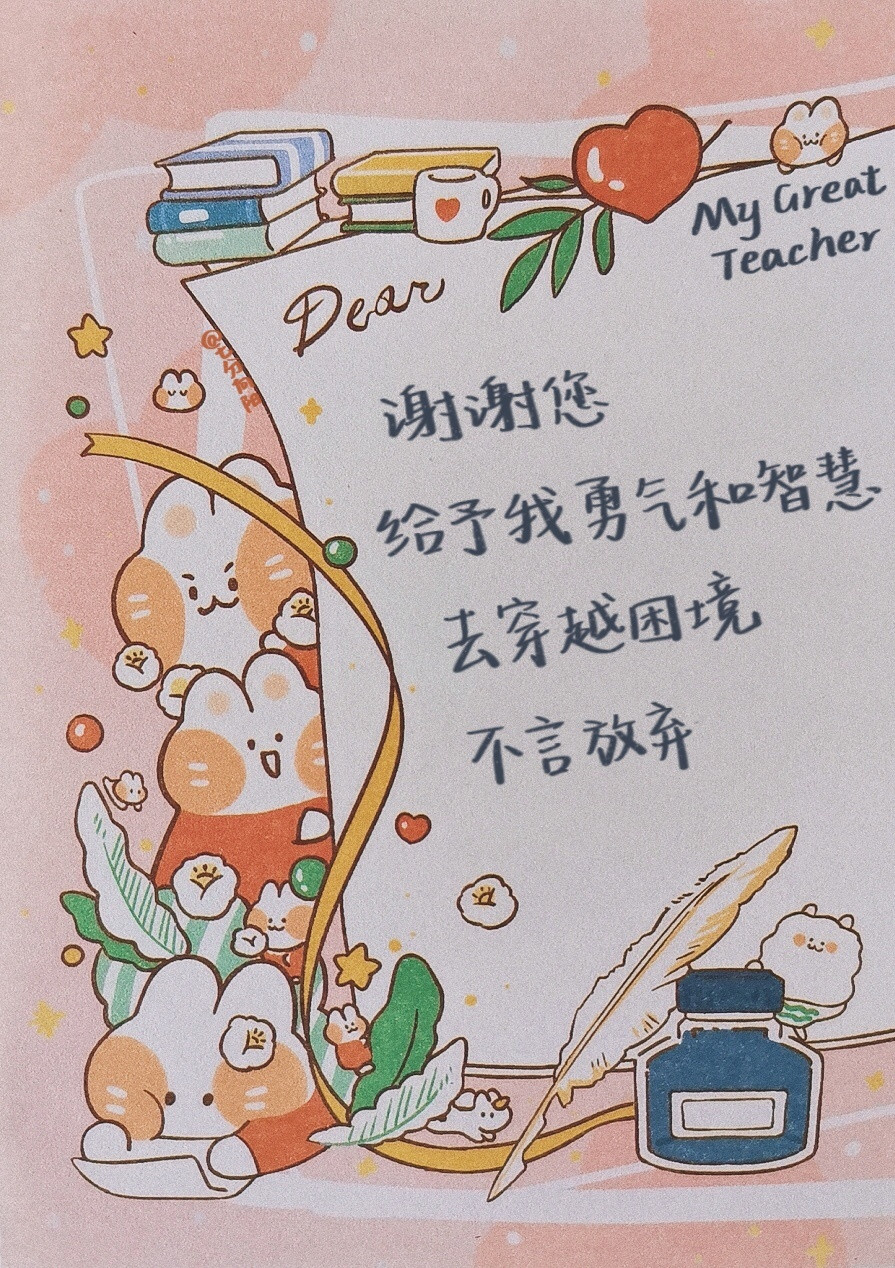 My Great
Teacher
Dear
谢谢您
给予我勇气和智慧
去穿越困境
不言放弃